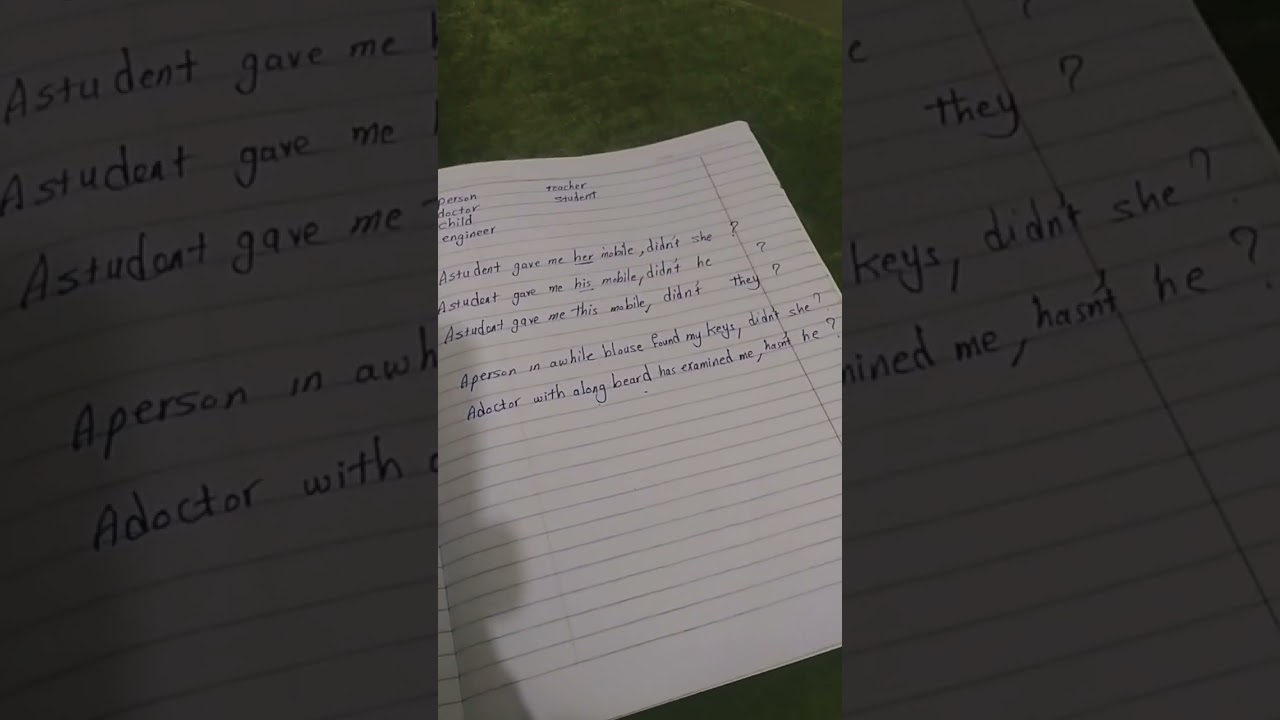 person
doctor
child
engineer
teacher
student
Astudent gave me her mobile, didn't she ?
Astudent gave me his mobile, didn't he ?
Astudent gave me this mobile, didn't they ?
Aperson in awhile blouse found my keys, didn't she ?
Adoctor with along beard has examined me, hasn't he ?